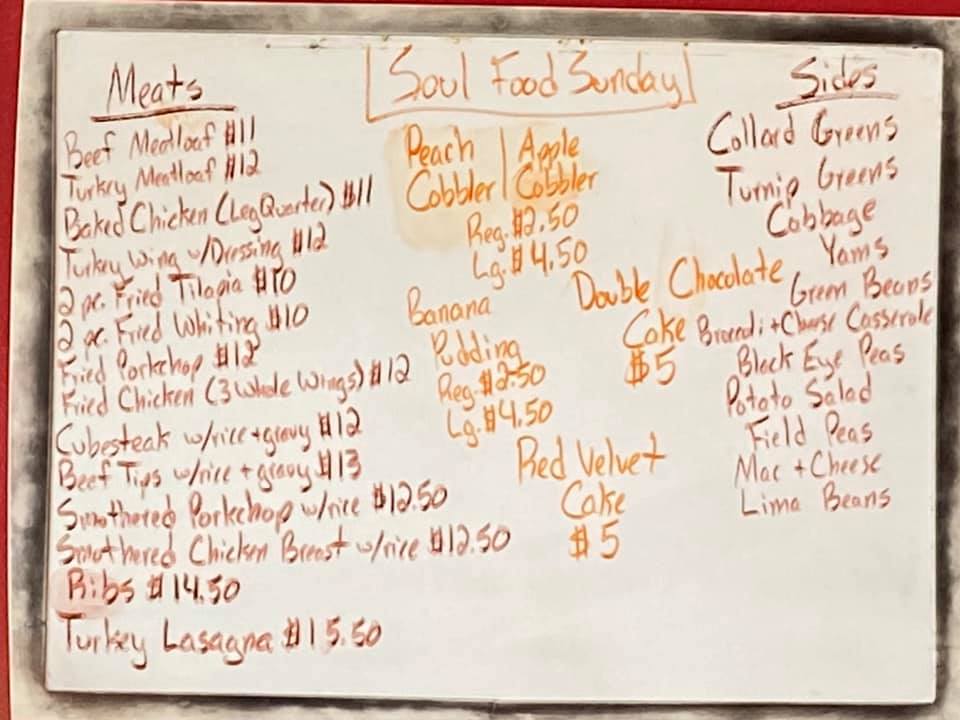 Soul Food Sunday
Meats
Beef Meatloaf $11
Turkey Meatloaf $12
Baked Chicken (Leg Quarter) $11
Turkey Wing w/Dressing $12
2 pc. Fried Tilapia $10
2 pc. Fried Whiting $10
Fried Porkchop $12
Fried Chicken (3 Whole Wings) $12
Cubesteak w/rice + gravy $12
Beef Tips w/rice + gravy $13
Smothered Porkchop w/rice $12.50
Smothered Chicken Breast w/rice $12.50
Ribs $14.50
Turkey Lasagna $15.50
Peach | Apple
Cobbler | Cobbler
Reg. $2.50
Lg. $4.50
Banana
Pudding
Reg. $2.50
Lg. $4.50
Double Chocolate
Cake
$5
Red Velvet
Cake
$5
Sides
Collard Greens
Turnip Greens
Cabbage
Yams
Green Beans
Broccoli + Cheese Casserole
Black Eye Peas
Potato Salad
Field Peas
Mac + Cheese
Lima Beans